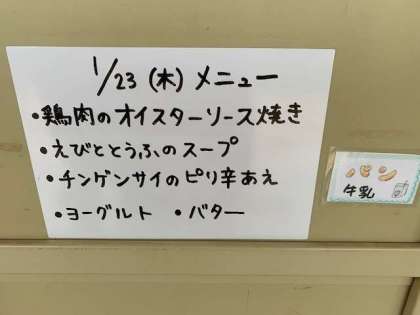 1/23 (木) メニュー
・鶏肉のオイスターソース焼き
・えびととうふのスープ
・チンゲンサイのピリ辛あえ
・ヨーグルト ・バター
パン
牛乳